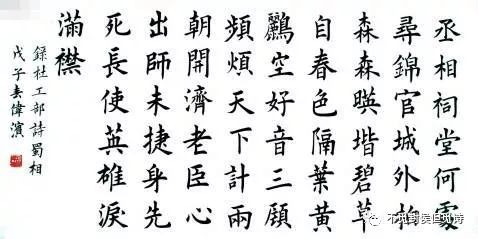 丞相祠堂何處
尋錦官城外柏
森森暎堦碧草
自春色隔葉黄
鸝空好音三顧
頻煩天下計兩
朝開濟老臣心
出師未捷身先
死長使英雄淚
滿襟
錄杜工部詩蜀相
戊子春偉濱